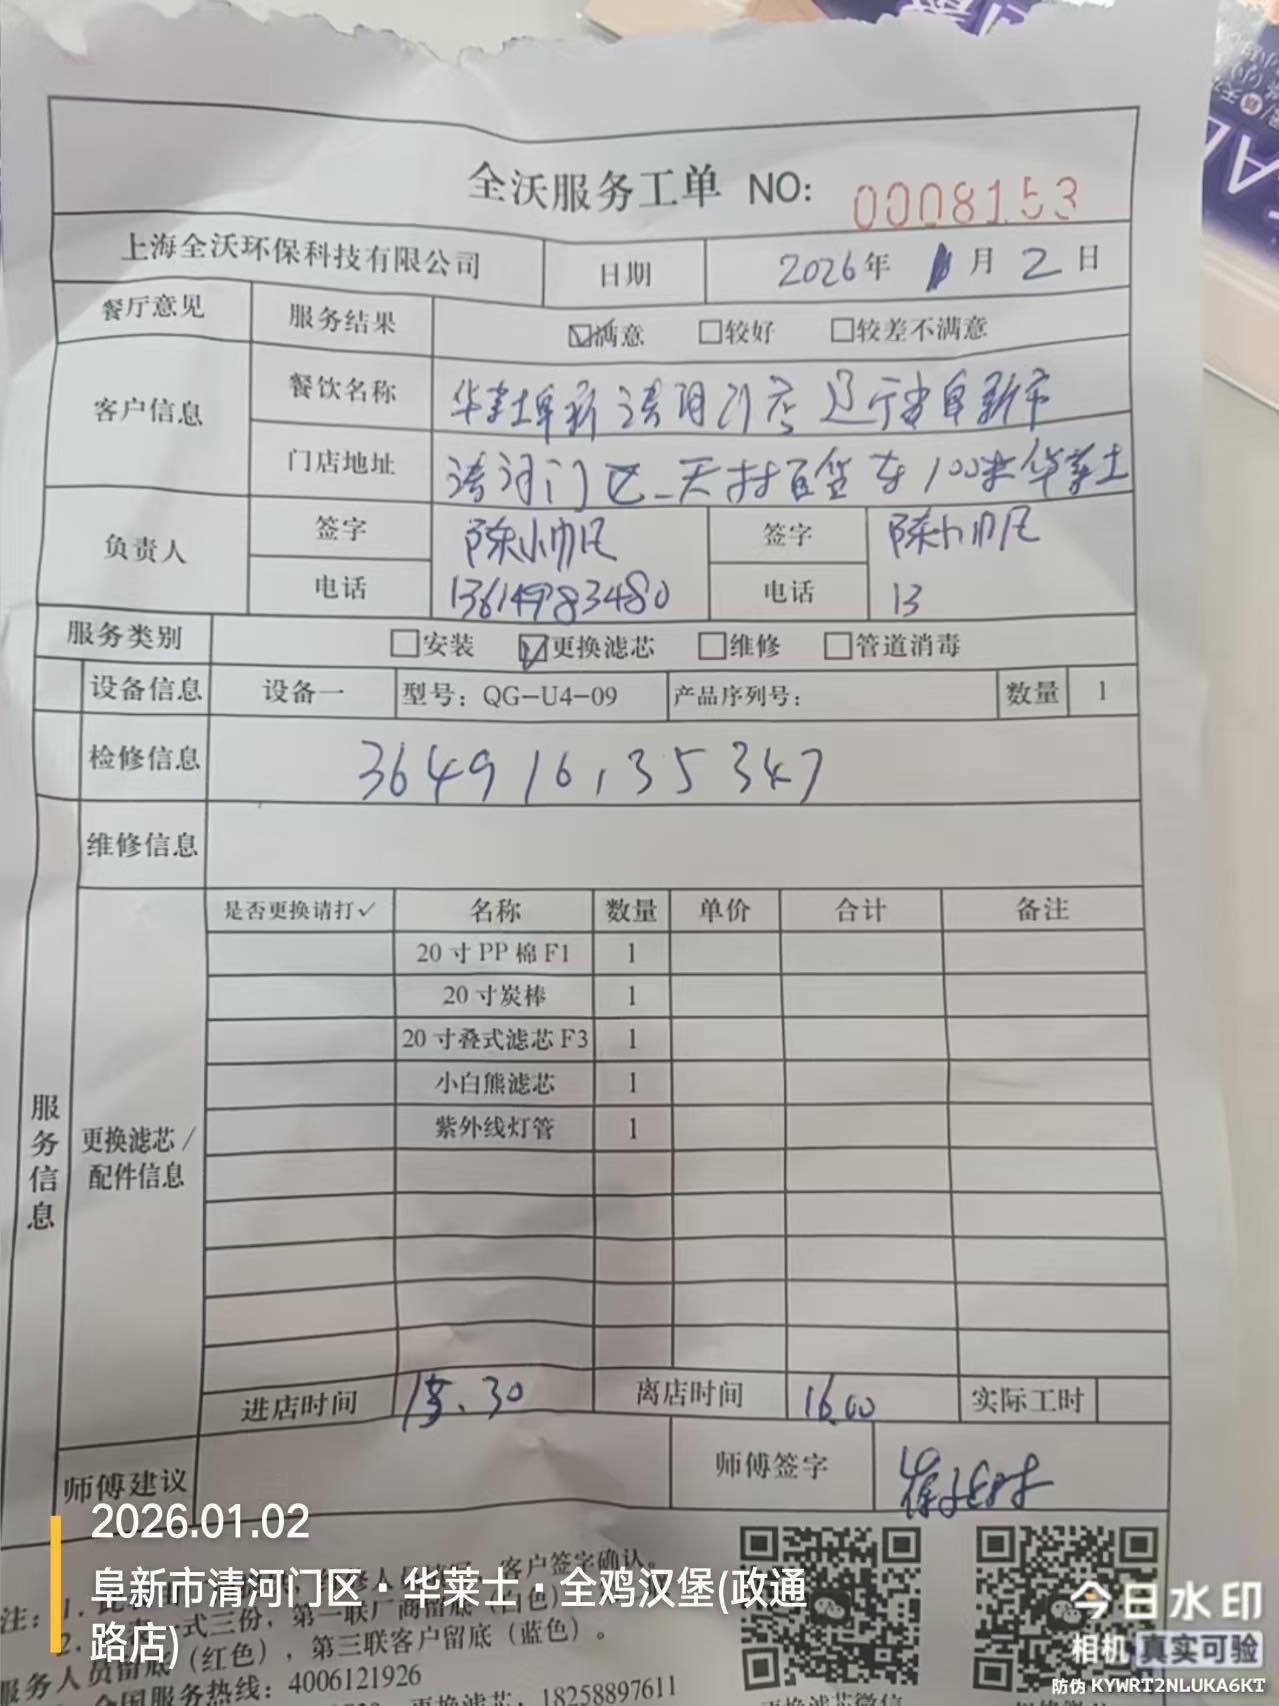 全沃服务工单 NO: 0008153
上海全沃环保科技有限公司 日期 2026年 1月 2日
餐厅意见 服务结果 ☑满意 □较好 □较差不满意
客户信息 餐饮名称 华莱士阜新清河门店 辽宁省阜新市
门店地址 清河门区 天村百货 东100米华莱士
负责人 签字 陈小帅 签字 陈小帅
电话 13614983480 电话 13
服务类别 □安装 ☑更换滤芯 □维修 □管道消毒
设备信息 设备一 型号: QG-U4-09 产品序列号: 数量 1
检修信息 364916,35347
维修信息
服务信息
更换滤芯/
配件信息
是否更换请打✓ 名称 数量 单价 合计 备注
20寸PP棉F1 1
20寸炭棒 1
20寸叠式滤芯F3 1
小白熊滤芯 1
紫外线灯管 1
进店时间 15.30 离店时间 16.00 实际工时
师傅建议 师傅签字
注: 1. 客户签字确认。
2. 式三份,第一联厂商留底(白色)
服务人员留底(红色),第三联客户留底(蓝色)。
全国服务热线: 4006121926
更换滤芯: 18258897611
更换滤芯微信
2026.01.02
阜新市清河门区·华莱士·全鸡汉堡(政通
路店)
今日水印
相机 真实可验
防伪 KYWRT2NLUKA6KT